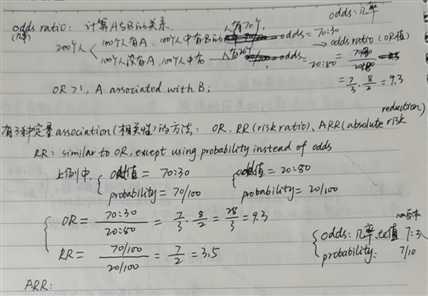 odds: 几率
odds ratio: 计算A与B的关系.
(几率)
200人 100人有A. 100人中有B的 人有70个, odds = 70:30
100人没有A. 100人中有 人有20个 odds = 20:80
→ odds ratio (OR值)
= 70:30 / 20:80
= 7/3 · 8/2 = 9.3
OR > 1, A associated with B.
有3种定量 association (相关性) 的方法: OR. RR (risk ratio), ARR (absolute risk reduction)
RR: similar to OR, except using probability instead of odds
上例中 { 值 = 70:30 { 值 = 20:80
probability = 70/100 probability = 20/100
{ OR = 70:30 / 20:80 = 7/3 · 8/2 = 28/3 = 9.3
RR = 70/100 / 20/100 = 7/2 = 3.5
{ odds: 几率, 比值 7:3
probability: 7/10
ARR: